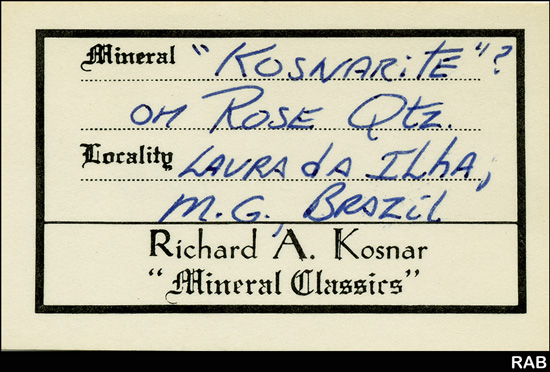 Mineral "KOSNARiTE"?
ON ROSE Qtz.
Locality LAVRA dA ILhA,
M.G., BRAZiL
Richard A. Kosnar
"Mineral Classics"
RAB